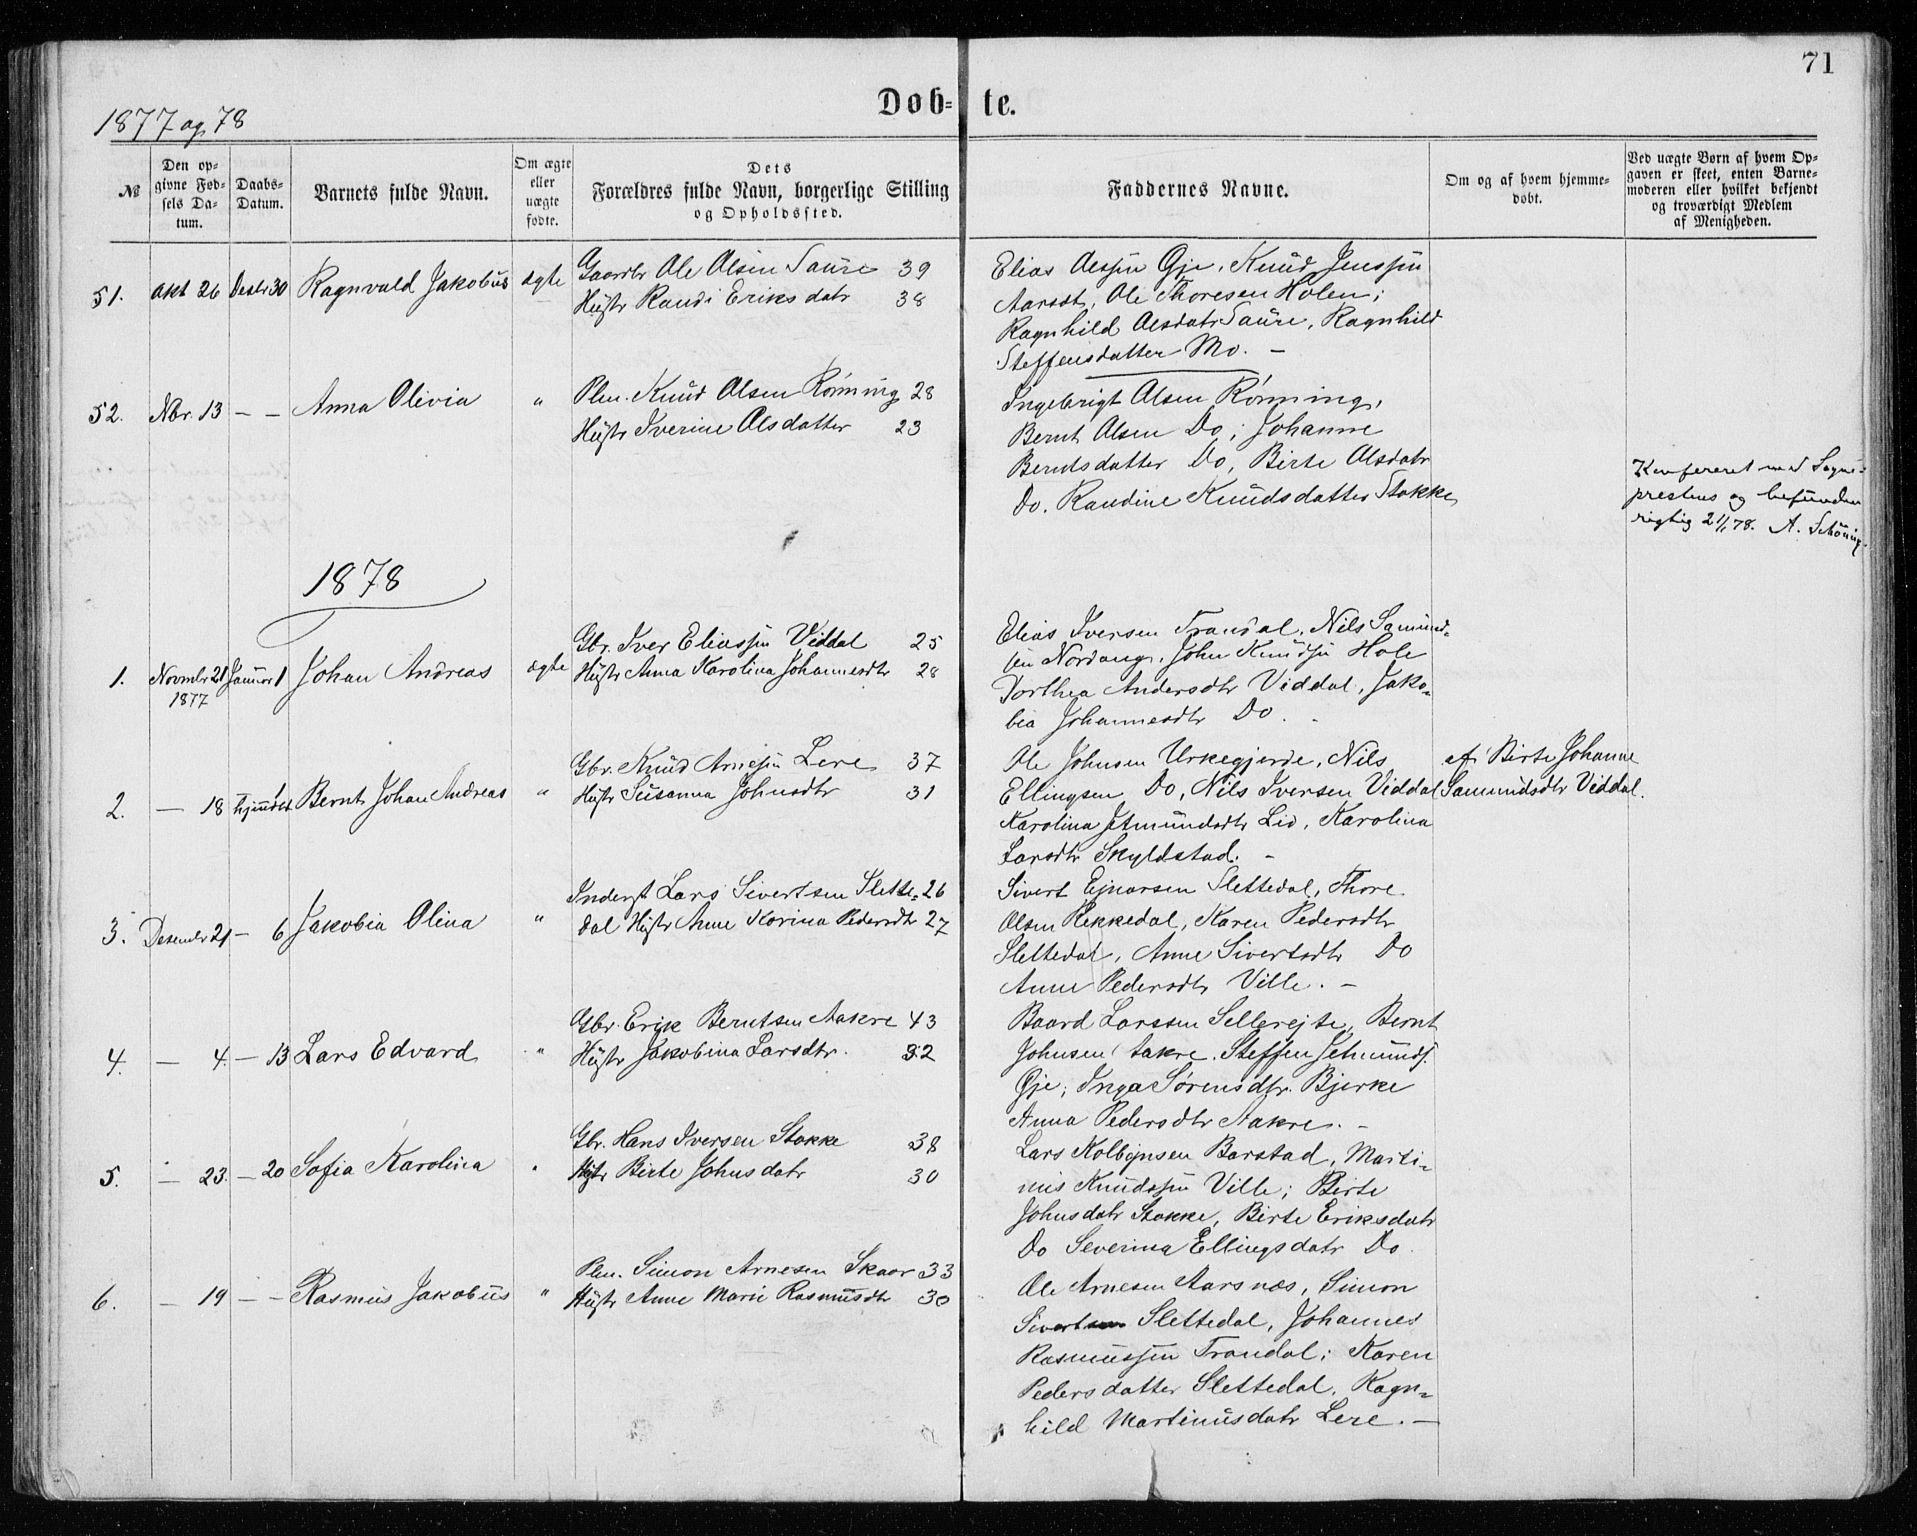 71
1877 og 78
Døb- te.
№
Den op-
givne Fød-
sels Da-
tum.
Daabs-
Datum.
Barnets fulde Navn.
Om ægte
eller
uægte
fødte.
Dets
Forældres fulde Navn, borgerlige Stilling
og Opholdssted.
Faddernes Navne.
Om og af hvem hjemme-
døbt.
Ved uægte Børn af hvem Op-
gaven er skeet, enten Barne-
moderen eller hvilket bekjendt
og troværdigt Medlem
af Menigheden.
51. Okt 26 Desbr 30 Ragnvald Jakobus ægte
Gaardbr Ole Olsen Saure 39
Hustr Randi Eriksdatr 38
Elias Olssen Øje, Knud Jenssen
Aarset, Ole Thoresen Holen;
Ragnhild Olsdatr Saure, Ragnhild
Steffensdatter Mo. —
52. Nbr. 13 — — Anna Olivia "
Plm. Knud Olsen Rønning 28
Hustr Iverine Olsdatter 23
Ingebrigt Olsen Rønning,
Bernt Olsen Do; Johanne
Berntsdatter Do, Birte Olsdatr
Do. Randine Knudsdatter Stokke
Konfereret med Sogne-
prestens og befunden
rigtig 2/1 78. A. Schöning.
1878
1. Novmbr 21 Januar 1 Johan Andreas ægte
1877
Gbr. Iver Eliassen Viddal 25
Hustr Anna Karolina Johannesdtr 28
Elias Iversen Trandal, Nils Samund-
sen Nordang, John Knudsen Hole
Dorthea Andersdtr Viddal, Jako-
bia Johannesdtr Do. -
2. — 18 hjemdøbt Bernt Johan Andreas "
Gbr. Knud Arnesen Lere 37
Hustr Susanna Johnsdtr 31
Ole Johnsen Urkegjerde, Nils
Ellingsen Do, Nils Iversen Viddal
Karolina Jetmundsdtr Lid, Karolina
Larsdtr Skyldstad. -
af Birte Johanne
Samundsdtr Viddal.
3. Desembr 21 — 6 Jakobia Olina "
Inderst Lars Sivertsen Slette- 26
dal Hustr Anne Karina Pedersdtr 27
Sivert Ejnarsen Slettedal, Thore
Olsen Rekkedal, Karen Pedersdtr
Slettedal, Anne Sivertsdtr Do
Anne Pedersdtr Ville. —
4. — 4. — 13 Lars Edvard "
Gbr. Erik Berntsen Aakre 43
Hustr Jakobina Larsdtr. 32
Baard Larssen Sellerejte, Bernt
Johnsen Aakre, Steffen Jetmunds.
Øje; Inga Sørensdtr. Bjerke
Anna Pedersdtr Aakre. -
5. — 23. — 20 Sofia Karolina "
Gbr. Hans Iversen Stokke 38
Hustr Birte Johnsdatr 30
Lars Kolbejnsen Barstad, Marti-
nus Knudssen Ville; Birte
Johnsdatr Stokke, Birte Eriksdatr
Do Severina Ellingsdatr Do.
6. — 19 — — Rasmus Jakobus "
Plm. Simon Arnesen Skaar 33
Hustr Anne Marie Rasmusdtr 30
Ole Arnesen Aarsnæs, Simon
Sivertsen Slettedal, Johannes
Rasmussen Trandal; Karen
Pedersdatter Slettedal, Ragn-
hild Martinusdatr Lere. —